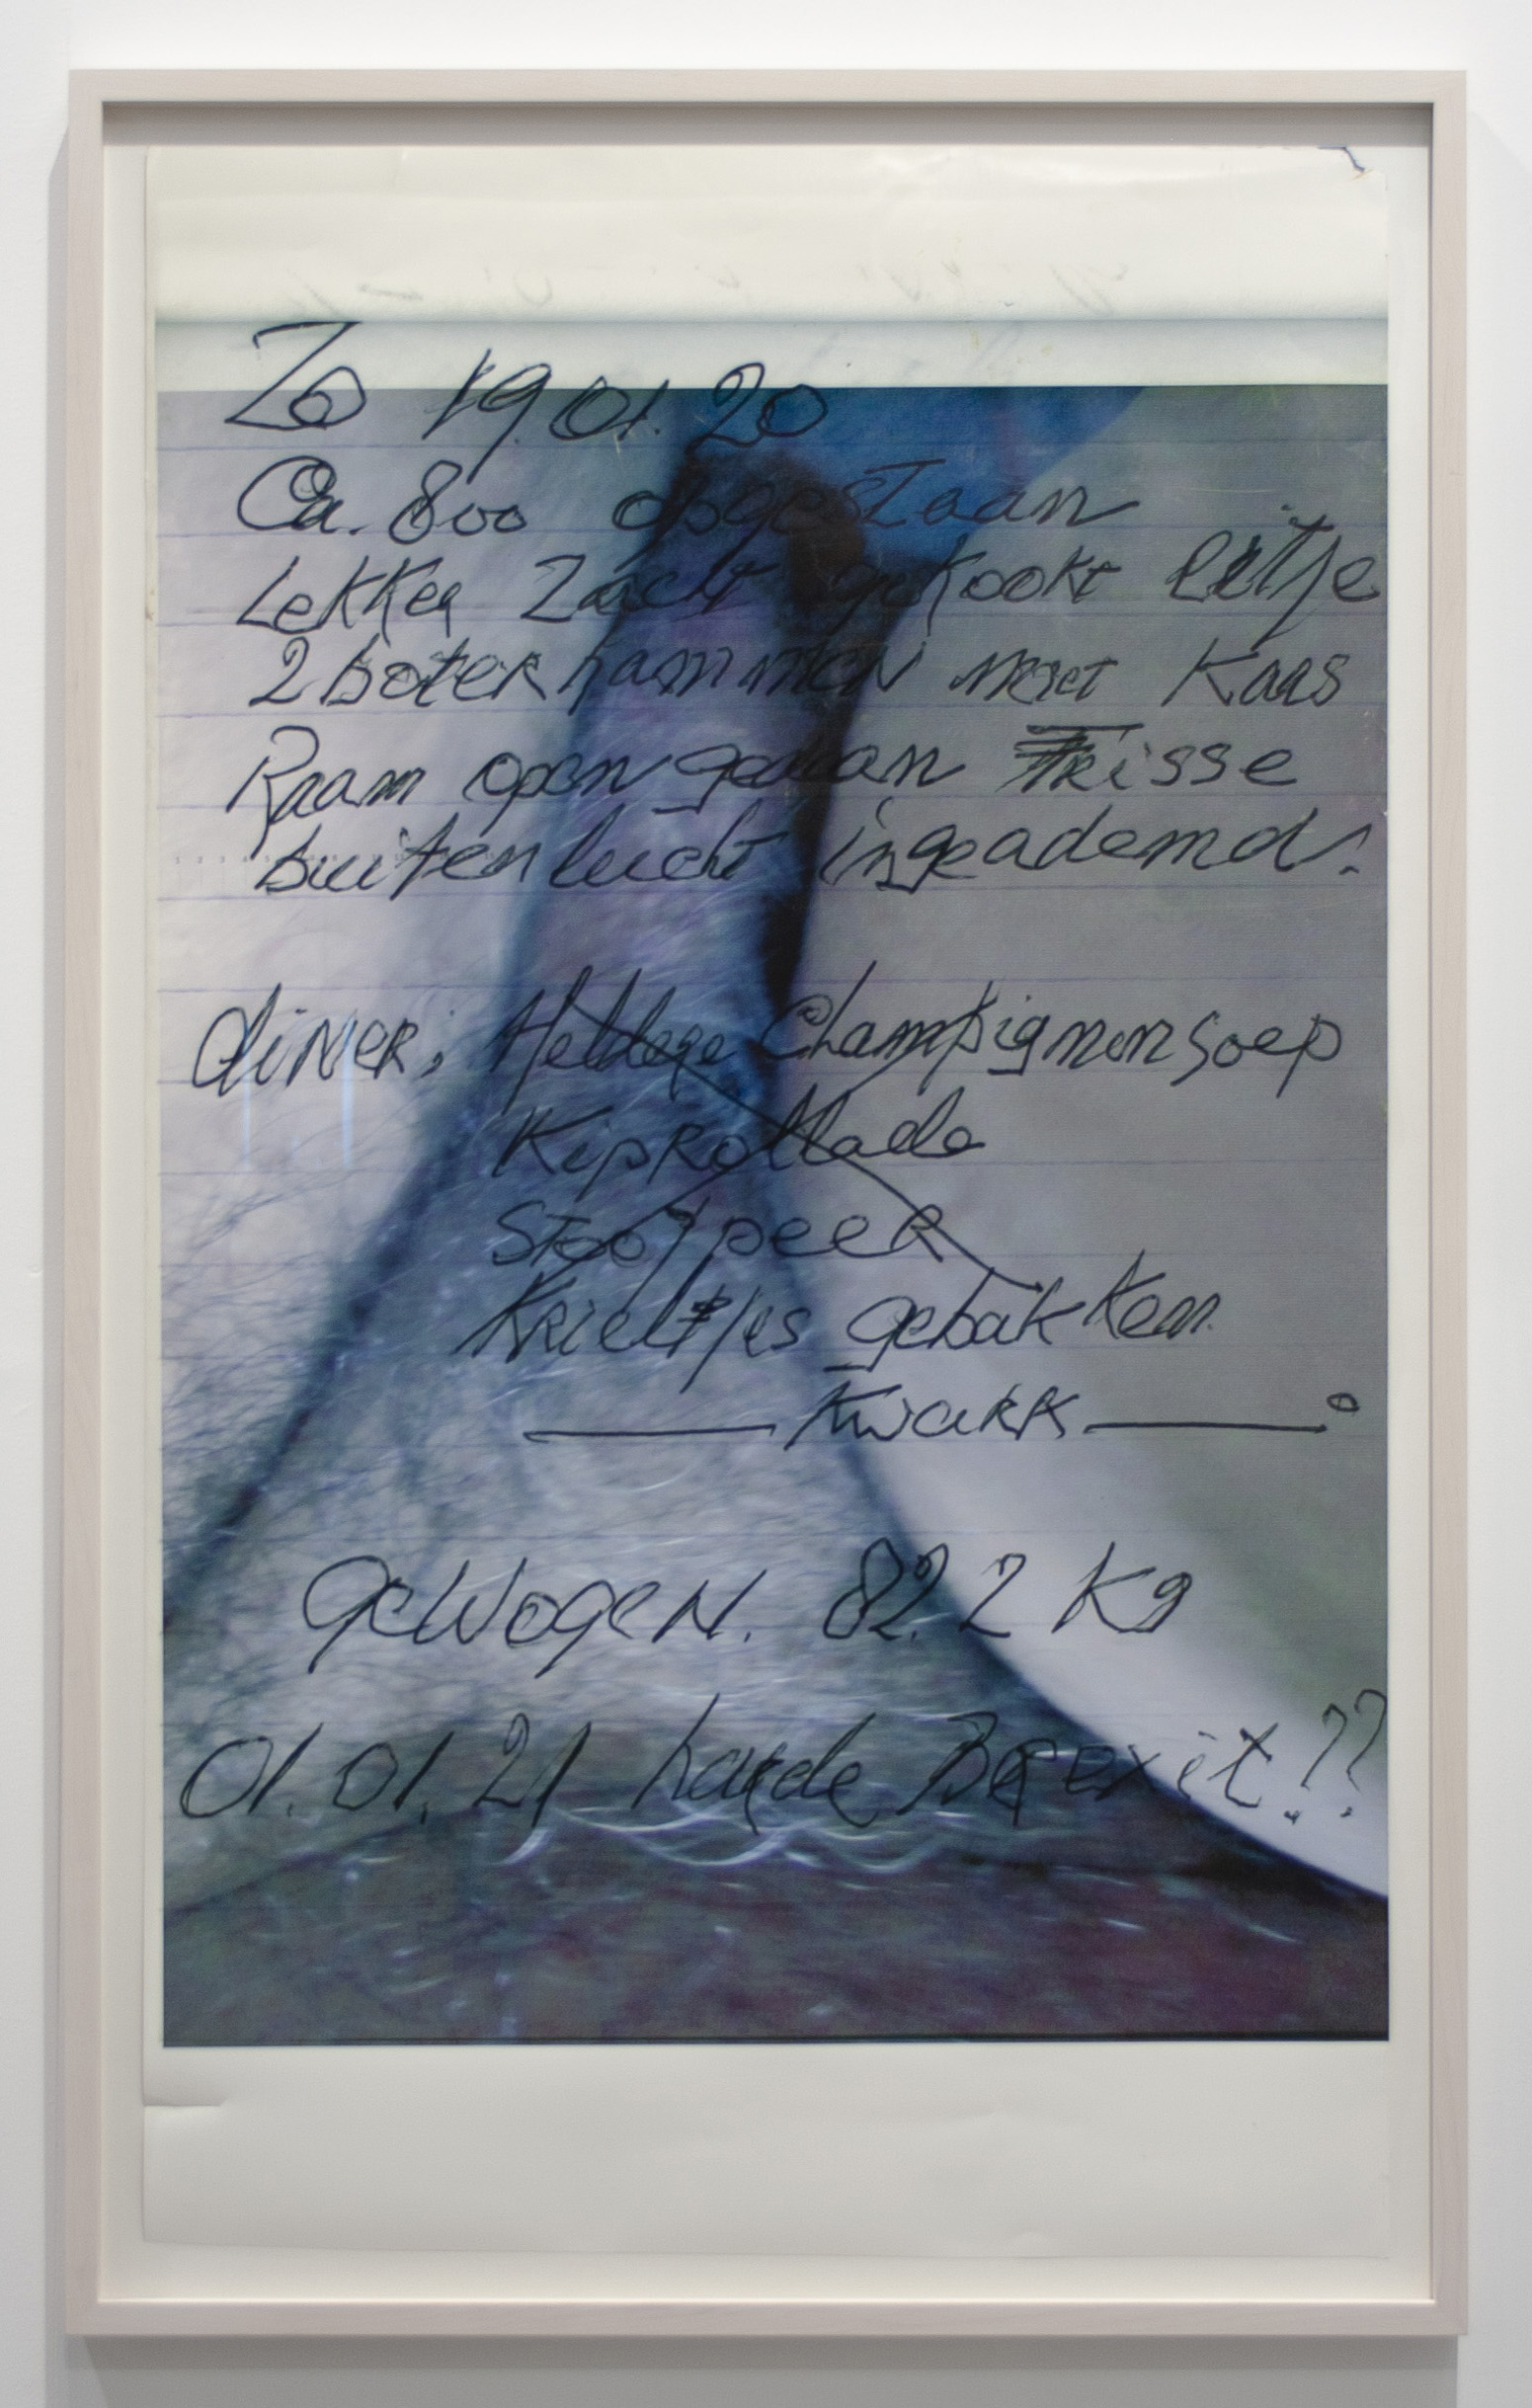 Zo 19.01.20
Ca. 800 opgestaan
Lekker Zacht gekookt eitje
2 boterhammen met Kaas
Raam open gedaan Frisse
buitenlucht ingeademd.
diner: Heldere Champignonsoep
Kiprollade
Stoofpeer
Krieltjes gebakken
Kwark
gewogen. 82.2 Kg
01.01.21 harde Brexit??